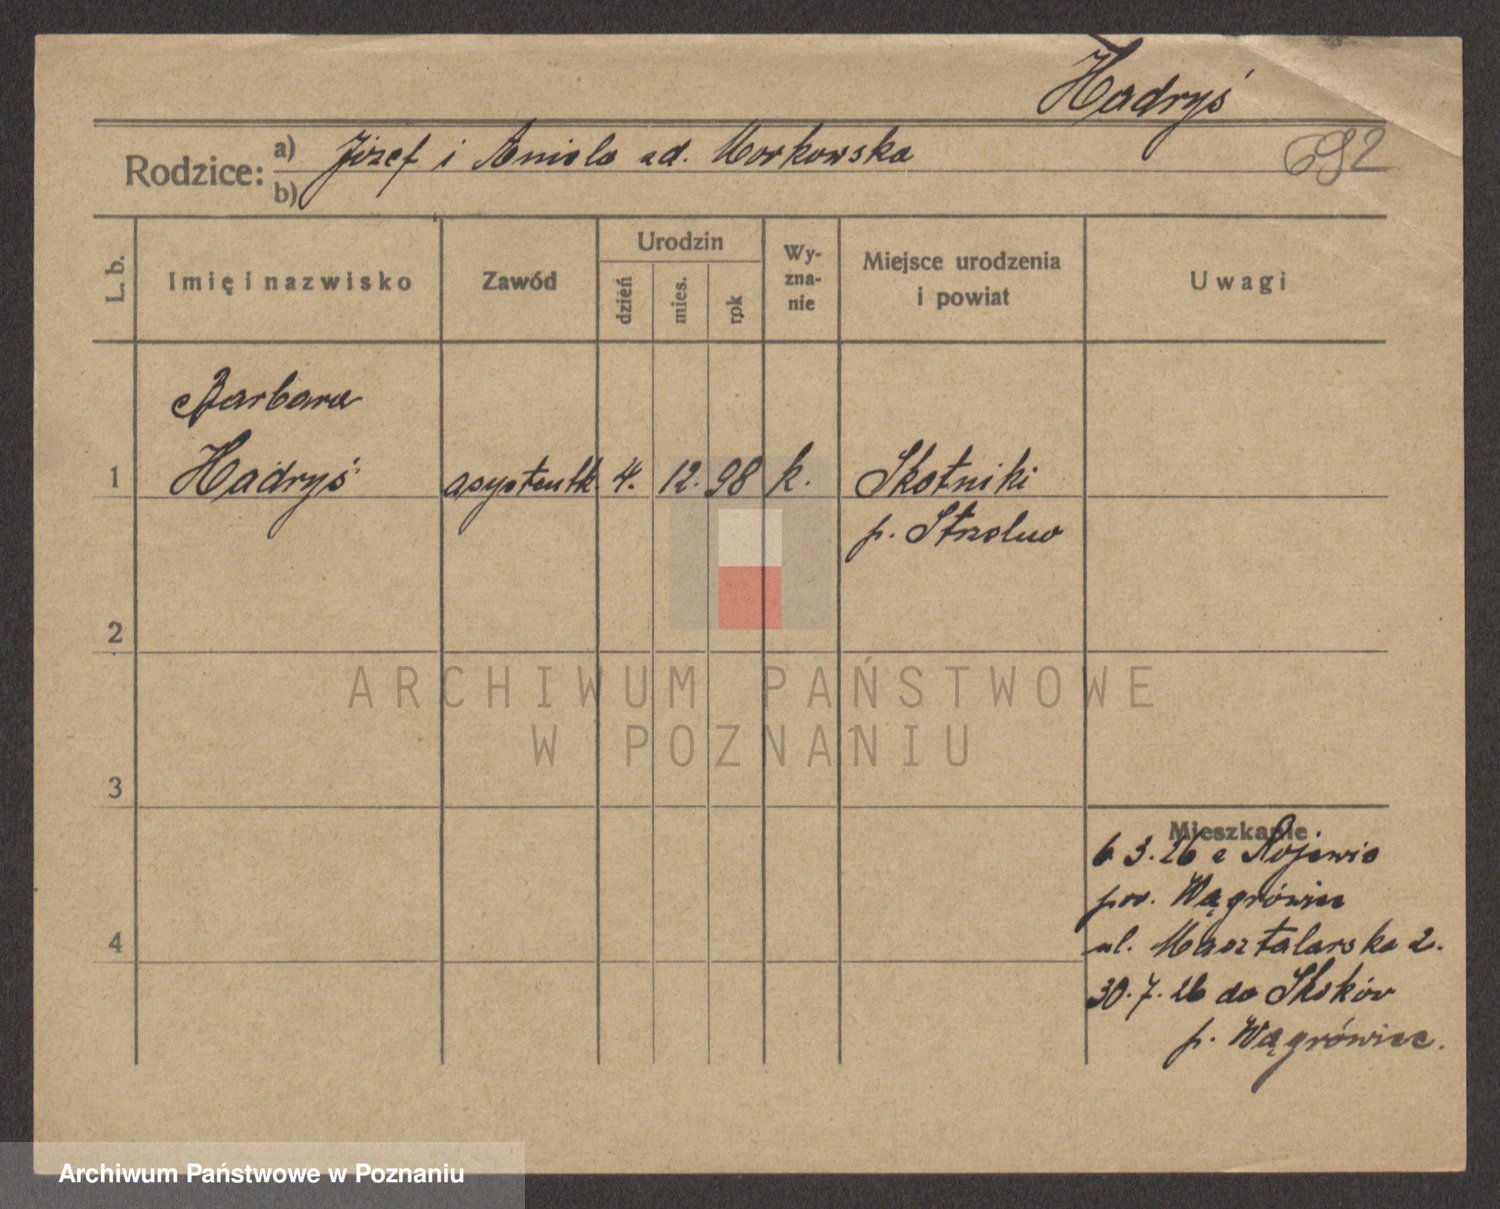 Hadryś
692
Rodzice: a) Józef i Aniela zd. Morkowska
b)
L. b.
Imię i nazwisko
Zawód
Urodzin
dzień
mies.
rok
Wy-
zna-
nie
Miejsce urodzenia
i powiat
Uwagi
Barbara
1 Hadryś asystentk. 4. 12. 98 k. Skotniki
p. Strzelno
2
ARCHIWUM PAŃSTWOWE
W POZNANIU
3
Mieszkanie
6.3.26 z Rojewie
pow. Wągrówiec
4 ul. Masztalarska 2.
30.7.26 do Skoków
p. Wągrówiec.
Archiwum Państwowe w Poznaniu